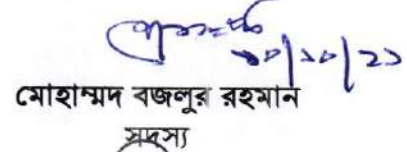 ১০/১০/২১
মোহাম্মদ বজলুর রহমান
সদস্য